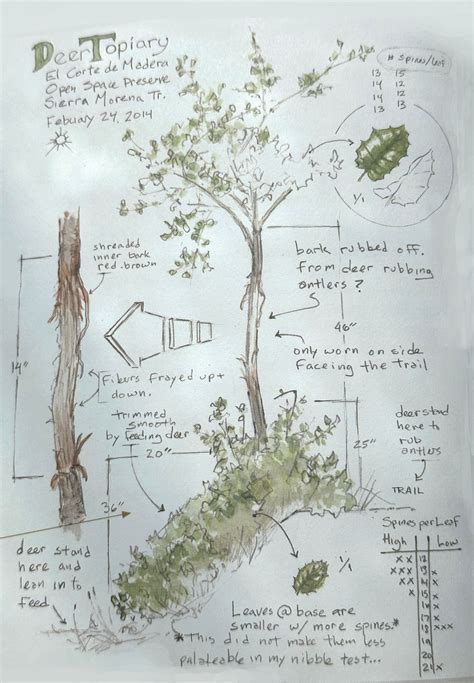 Deer Topiary
El Corte de Madera
Open Space Preserve
Sierra Morena Tr.
Febuary 24, 2014
# Spines/Leaf
13 15
14 12
14 12
13 13
1/1
shreaded
inner bark
red-brown
14"
Fiburs Frayed up +
down.
bark rubbed off.
from deer rubbing
antlers ?
46"
only worn on side
Faceing the Trail
trimmed
smooth
by feeding deer
20"
36"
25"
deer stand
here to
rub
antlers
TRAIL
deer stand
here and
lean in to
feed
1/1
Leaves @ base are
smaller w/ more spines.*
*This did not make them less
palateable in my nibble test...
Spines per Leaf
High Low
xx 12
xxx 13 x
xx 14 x
x 15 x
16
17 x
18 xxx
19
20
21 x